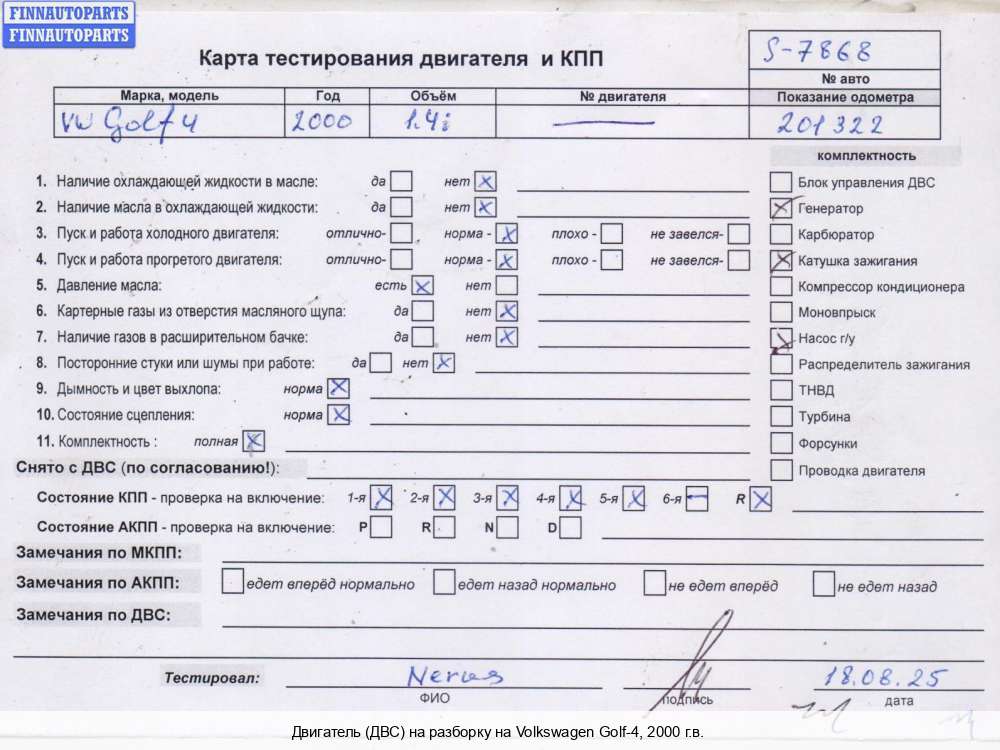 FINNAUTOPARTS
FINNAUTOPARTS
Карта тестирования двигателя и КПП
S-7868
№ авто
Марка, модель Год Объём № двигателя Показание одометра
VW Golf 4 2000 1.4i 201322
комплектность
1. Наличие охлаждающей жидкости в масле: да нет
Блок управления ДВС
2. Наличие масла в охлаждающей жидкости: да нет
Генератор
3. Пуск и работа холодного двигателя: отлично- норма - плохо - не завелся-
Карбюратор
4. Пуск и работа прогретого двигателя: отлично- норма - плохо - не завелся-
Катушка зажигания
5. Давление масла: есть нет
Компрессор кондиционера
6. Картерные газы из отверстия масляного щупа: да нет
Моновпрыск
7. Наличие газов в расширительном бачке: да нет
Насос г/у
8. Посторонние стуки или шумы при работе: да нет
Распределитель зажигания
9. Дымность и цвет выхлопа: норма
ТНВД
10. Состояние сцепления: норма
Турбина
11. Комплектность : полная
Форсунки
Снято с ДВС (по согласованию!):
Проводка двигателя
Состояние КПП - проверка на включение: 1-я 2-я 3-я 4-я 5-я 6-я R
Состояние АКПП - проверка на включение: P R N D
Замечания по МКПП:
Замечания по АКПП: едет вперёд нормально едет назад нормально не едет вперёд не едет назад
Замечания по ДВС:
Тестировал: 18.08.25
ФИО подпись дата
Двигатель (ДВС) на разборку на Volkswagen Golf-4, 2000 г.в.